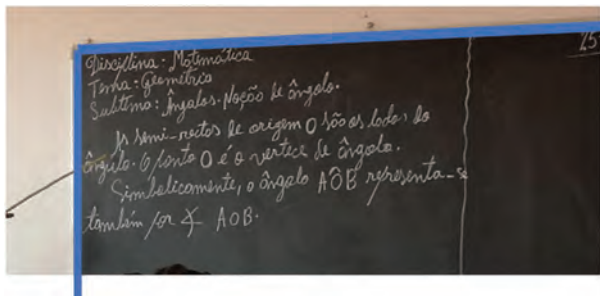 Disciplina: Matemática
Tema: Geometria
Subtema: Ângulos. Noção de ângulo.
As semi-rectas de origem O são os lados do
ângulo. O ponto O é o vertece de ângolo.
Simbolicamente, o ângolo AÔB representa-se
também por ∡ AOB.
25